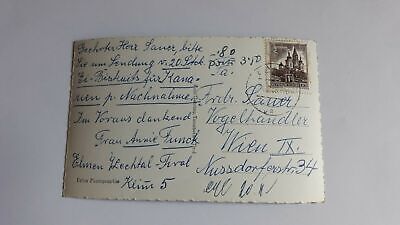 Geehrter Herr Sauer, bitte
Sie um Sendung v. 20 Stck
Ei-Biskuits für Kana-
rien p. Nachnahme.
Im Voraus dankend
Frau Annie Punck
Elmen Lechtal Tirol
Klim 5
-80
porto 3·50
Frdr. Sauer
Vogelhändler
Wien IX.
Nussdorferstr. 34
Echte Photographie